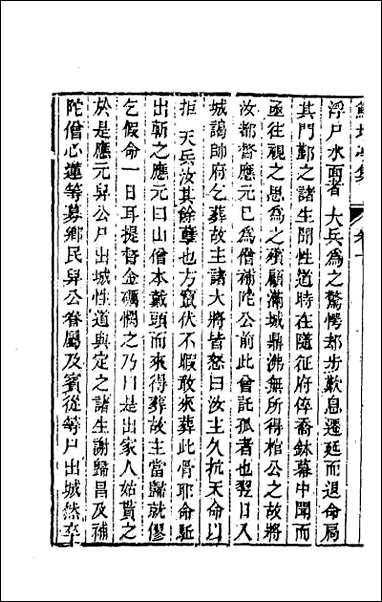 鮚埼亭集
卷十
浮尸水面者 大兵為之驚愕却步歎息遷延而退命扃
其門鄞之諸生聞性道時在隨征府倅喬鉢幕中聞而
亟往視之思為之殯顧滿城鼎沸無所得棺公之故將
汝都督應元已為僧補陀公前此曾託孤者也翌日入
城謁帥府乞葬故主諸大將皆怒曰汝主久抗天命以
拒 天兵汝其餘孽也方竄伏不暇敢來葬此骨耶命駈
出斬之應元曰山僧本戴頭而來得葬故主當歸就僇
乞假命一日耳提督金礪憫之乃曰是出家人姑貰之
於是應元舁公尸出城性道與定之諸生謝歸昌及補
陀僧心蓮等募鄉民舁公眷屬及賓從等尸出城然卒